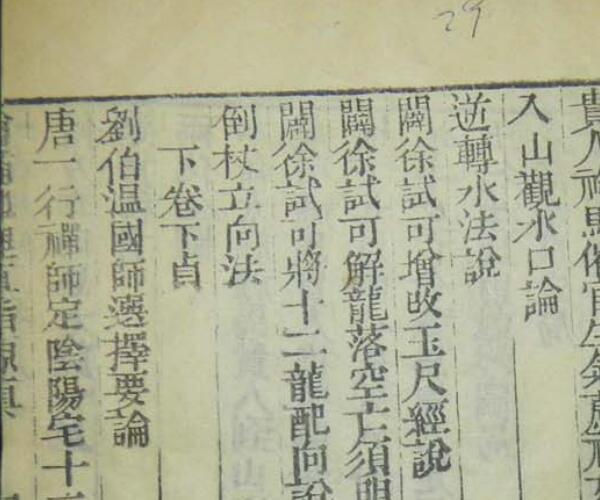 29
貴人祿馬催官生
入山觀水口論
逆轉水法說
闢徐試可增改玉尺經說
闢徐試可解龍落空亡須明
闢徐試可將十二龍配向說
倒杖立向法
下卷下貞
劉伯溫國師選擇要論
唐一行禪師定陰陽宅十